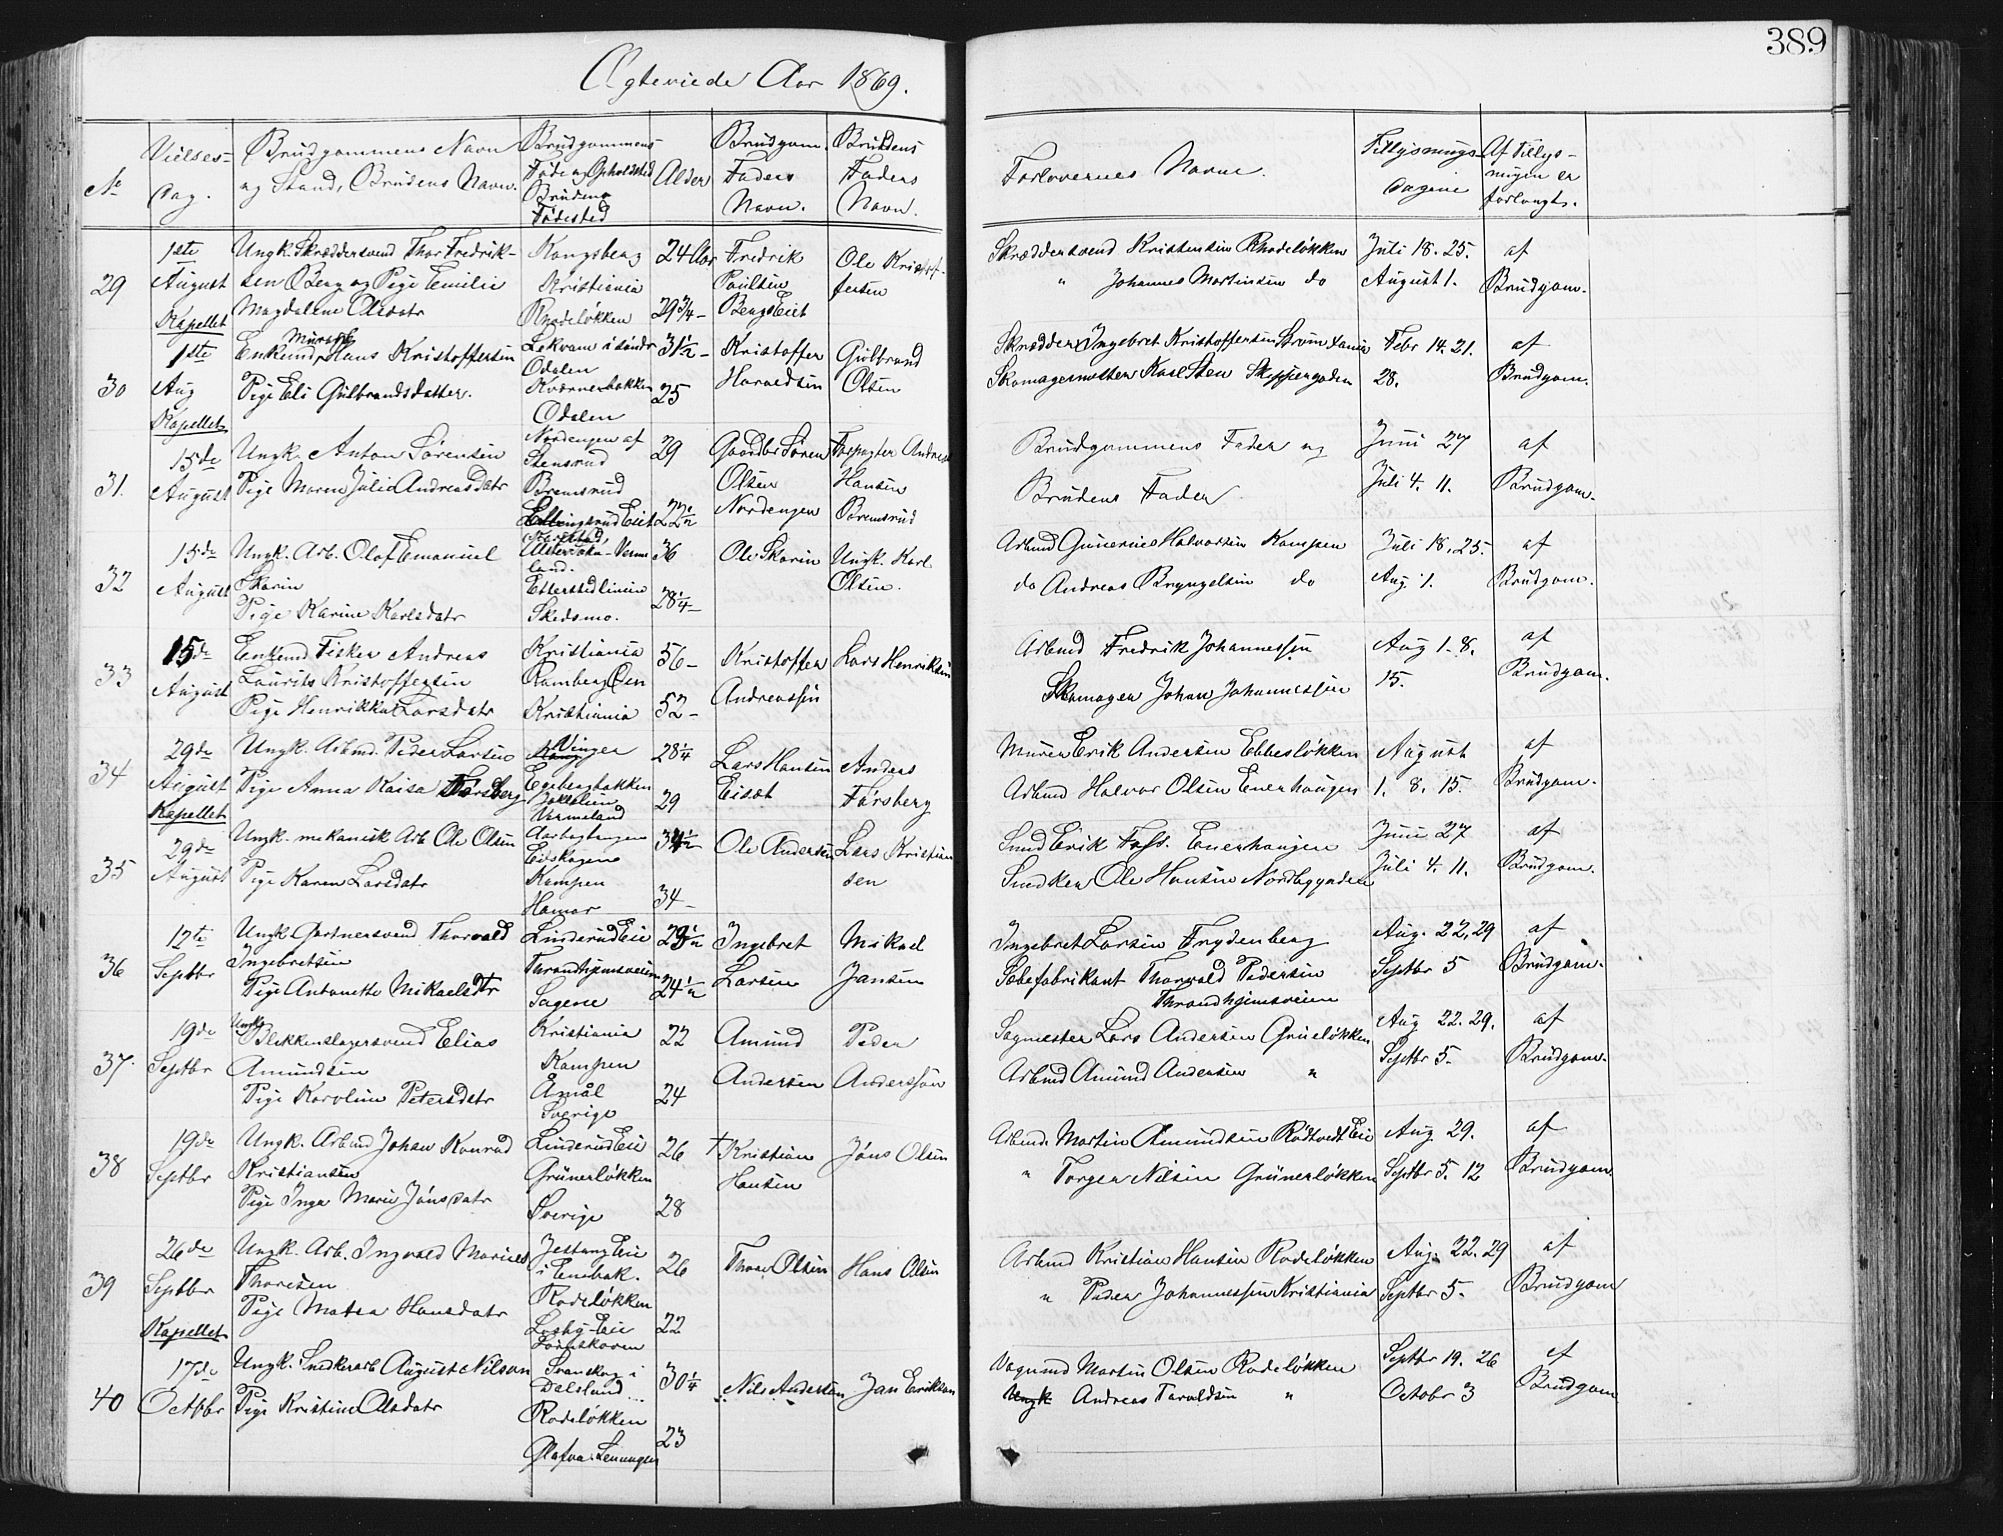 389
Ægteviede Aar 1869.
No
Vielses-
dag.
Brudgommens Navn
og Stand, Brudens Navn.
Brudgommens
Føde og Opholdsted
Brudens
Fødested
Alder
Brudgom.
Faders
Navn.
Brudens
Faders
Navn.
Forlovernes Navne.
Tillysnings-
dagene
Af Tillys-
ningen er
forlangt.
29
1ste
August
Kapellet
Ungk. Skræddersvend Thor Fredrik-
sen Berg og Pige Emilie
Magdalene Olsdatr
Kongsberg
Kristiania
Rhodeløkken
24 Aar
29 3/4 -
Fredrik
Paulsen
Bergs Eiet
Ole Kristof-
fersen
Skræddersvend Kristensen Rhodeløkken
" Johannes Martinsen do
Juli 18. 25.
August 1.
af
Brudgom.
30
1ste
Aug
Kapellet
Enkemd Hans Kristoffersen
Pige Eli Gulbrandsdatter.
Odalen
Odalen
31 1/2 -
25
Kristoffer
Haraldsen
Gulbrand
Olsen
Skrædder Ingebret Kristoffersen
Skomagermester Karl Sten Skippergaden
Febr 14. 21.
28.
af
Brudgom.
31.
15de
August
Ungk. Anton Sørensen
Pige Maren Julie Andreasdatr
Nordengen af
Stensrud
Bremsrud
Ellingsrud Eiet
29
22 1/2
Gaardbr Søren
Olsen
Nordengen
Forpagter Andreas
Hansen
Bremsrud
Brudgommens Fader og
Brudens Fader
Juni 27
Juli 4. 11.
af
Brudgom.
32
15de
August
Ungk. Arb. Olof Emanuel
Skarin
Pige Karine Karlsdatr
Verm
land.
Etterstedlinien
Skedsmo.
36
28 1/4 -
Ole Skarin
Ungk. Karl
Olsen.
Arbmd Gunerius Halvorsen Kampen
do Andreas Bryngelsen do
Juli 18. 25.
Aug 1.
af
Brudgom.
33
15de
August
Enkemd Fisker Andreas
Laurits Kristoffersen
Pige Henrikke Larsdatr
Kristiania
Ramberg Øen
Kristiania
56 -
52 -
Kristoffer
Andreassen
Lars Henriksen
Arbmd Fredrik Johannessen
Skomager Johan Johannessen
Aug 1. 8.
15.
af
Brudgom.
34
29de
August
Kapellet
Ungk. Arbmd. Peder Larsen
Pige Anna Kaisa Forsberg
Vinger
Egebergbakken
Vermeland
28 1/4
29
Lars Hansen
Eisæt
Anders
Forsberg
Murer Erik Andersen Ebbesløkken
Arbmd Halvor Olsen Enerhaugen
August
1. 8. 15.
af
Brudgom.
35
29de
August
Ungk. mekanisk Arb Ole Olsen
Pige Karen Larsdatr
Aarboghaugen
Eidskogen
Kampen
Hamar
34 1/2
34 -
Ole Andersen
Lars Kristian
sen
Smd Erik Foss. Enerhaugen
Snedker Ole Hansen Nordbygaden
Juni 27
Juli 4. 11.
af
Brudgom.
36
12te
Septbr
Ungk Gartnersvend Thorvald
Ingebretsen
Pige Antonette Mikaelsdtr
Linderud Eie
Throndhjemsveien
Sagene
23 1/2
24 1/2
Ingebret
Larsen
Mikael
Jansen
Ingebret Larsen Frydenberg
Sæbefabrikant Thorvald Pedersen
Throndhjemsveien
Aug. 22. 29
Septbr 5
af
Brudgom.
37.
19de
Septbr
Ungk
Blikkenslagersvend Elias
Amundsen
Pige Karoline Petersdatr
Kristiania
Kampen
Åmål
Sverige
22
24
Amund
Andersen
Peder
Anderssøn
Sagmester Lars Andersen Grüneløkken
Arbmd Amund Andersen "
Aug 22. 29.
Septbr 5.
af
Brudgom.
38
19de
Septbr
Ungk. Arbmd Johan Konrad
Kristiansen
Pige Inga Marie Jønsdatr
Linderud Eie
Grünerløkken
Sverige
26
28
† Kristian
Hansen
Jøns Olsen
Arbmd. Martin Amundsen Rødtvedt Eie
" Torger Nilsen Grünerløkken
Aug. 29.
Septbr 5. 12
af
Brudgom
39
26de
Septbr
Kapellet
Ungk. Arb. Ingvald Marius
Thoresen
Pige Mathea Hansdatr
Jestang Eie
i Enebak.
Rodeløkken
Losby-Eie
Lørenskoven
26
22
Thore Olsen
Hans Olsen
Arbmd Kristian Hansen Rodeløkken
" Peder Johannessen Kristiania
Aug. 22. 29
Septbr 5.
af
Brudgom
40
17de
Octbr
Ungk. Snedkerarb August Nilson
Pige Kristine Olsdatr
Svanskog i
Dalsland
Rodeløkken
30 1/4
23
Nils Andersen
Jan Erikson
Vognmd Martin Olsen Rodeløkken
Andreas Taraldsen "
Septbr 19. 26
October 3
af
Brudgom